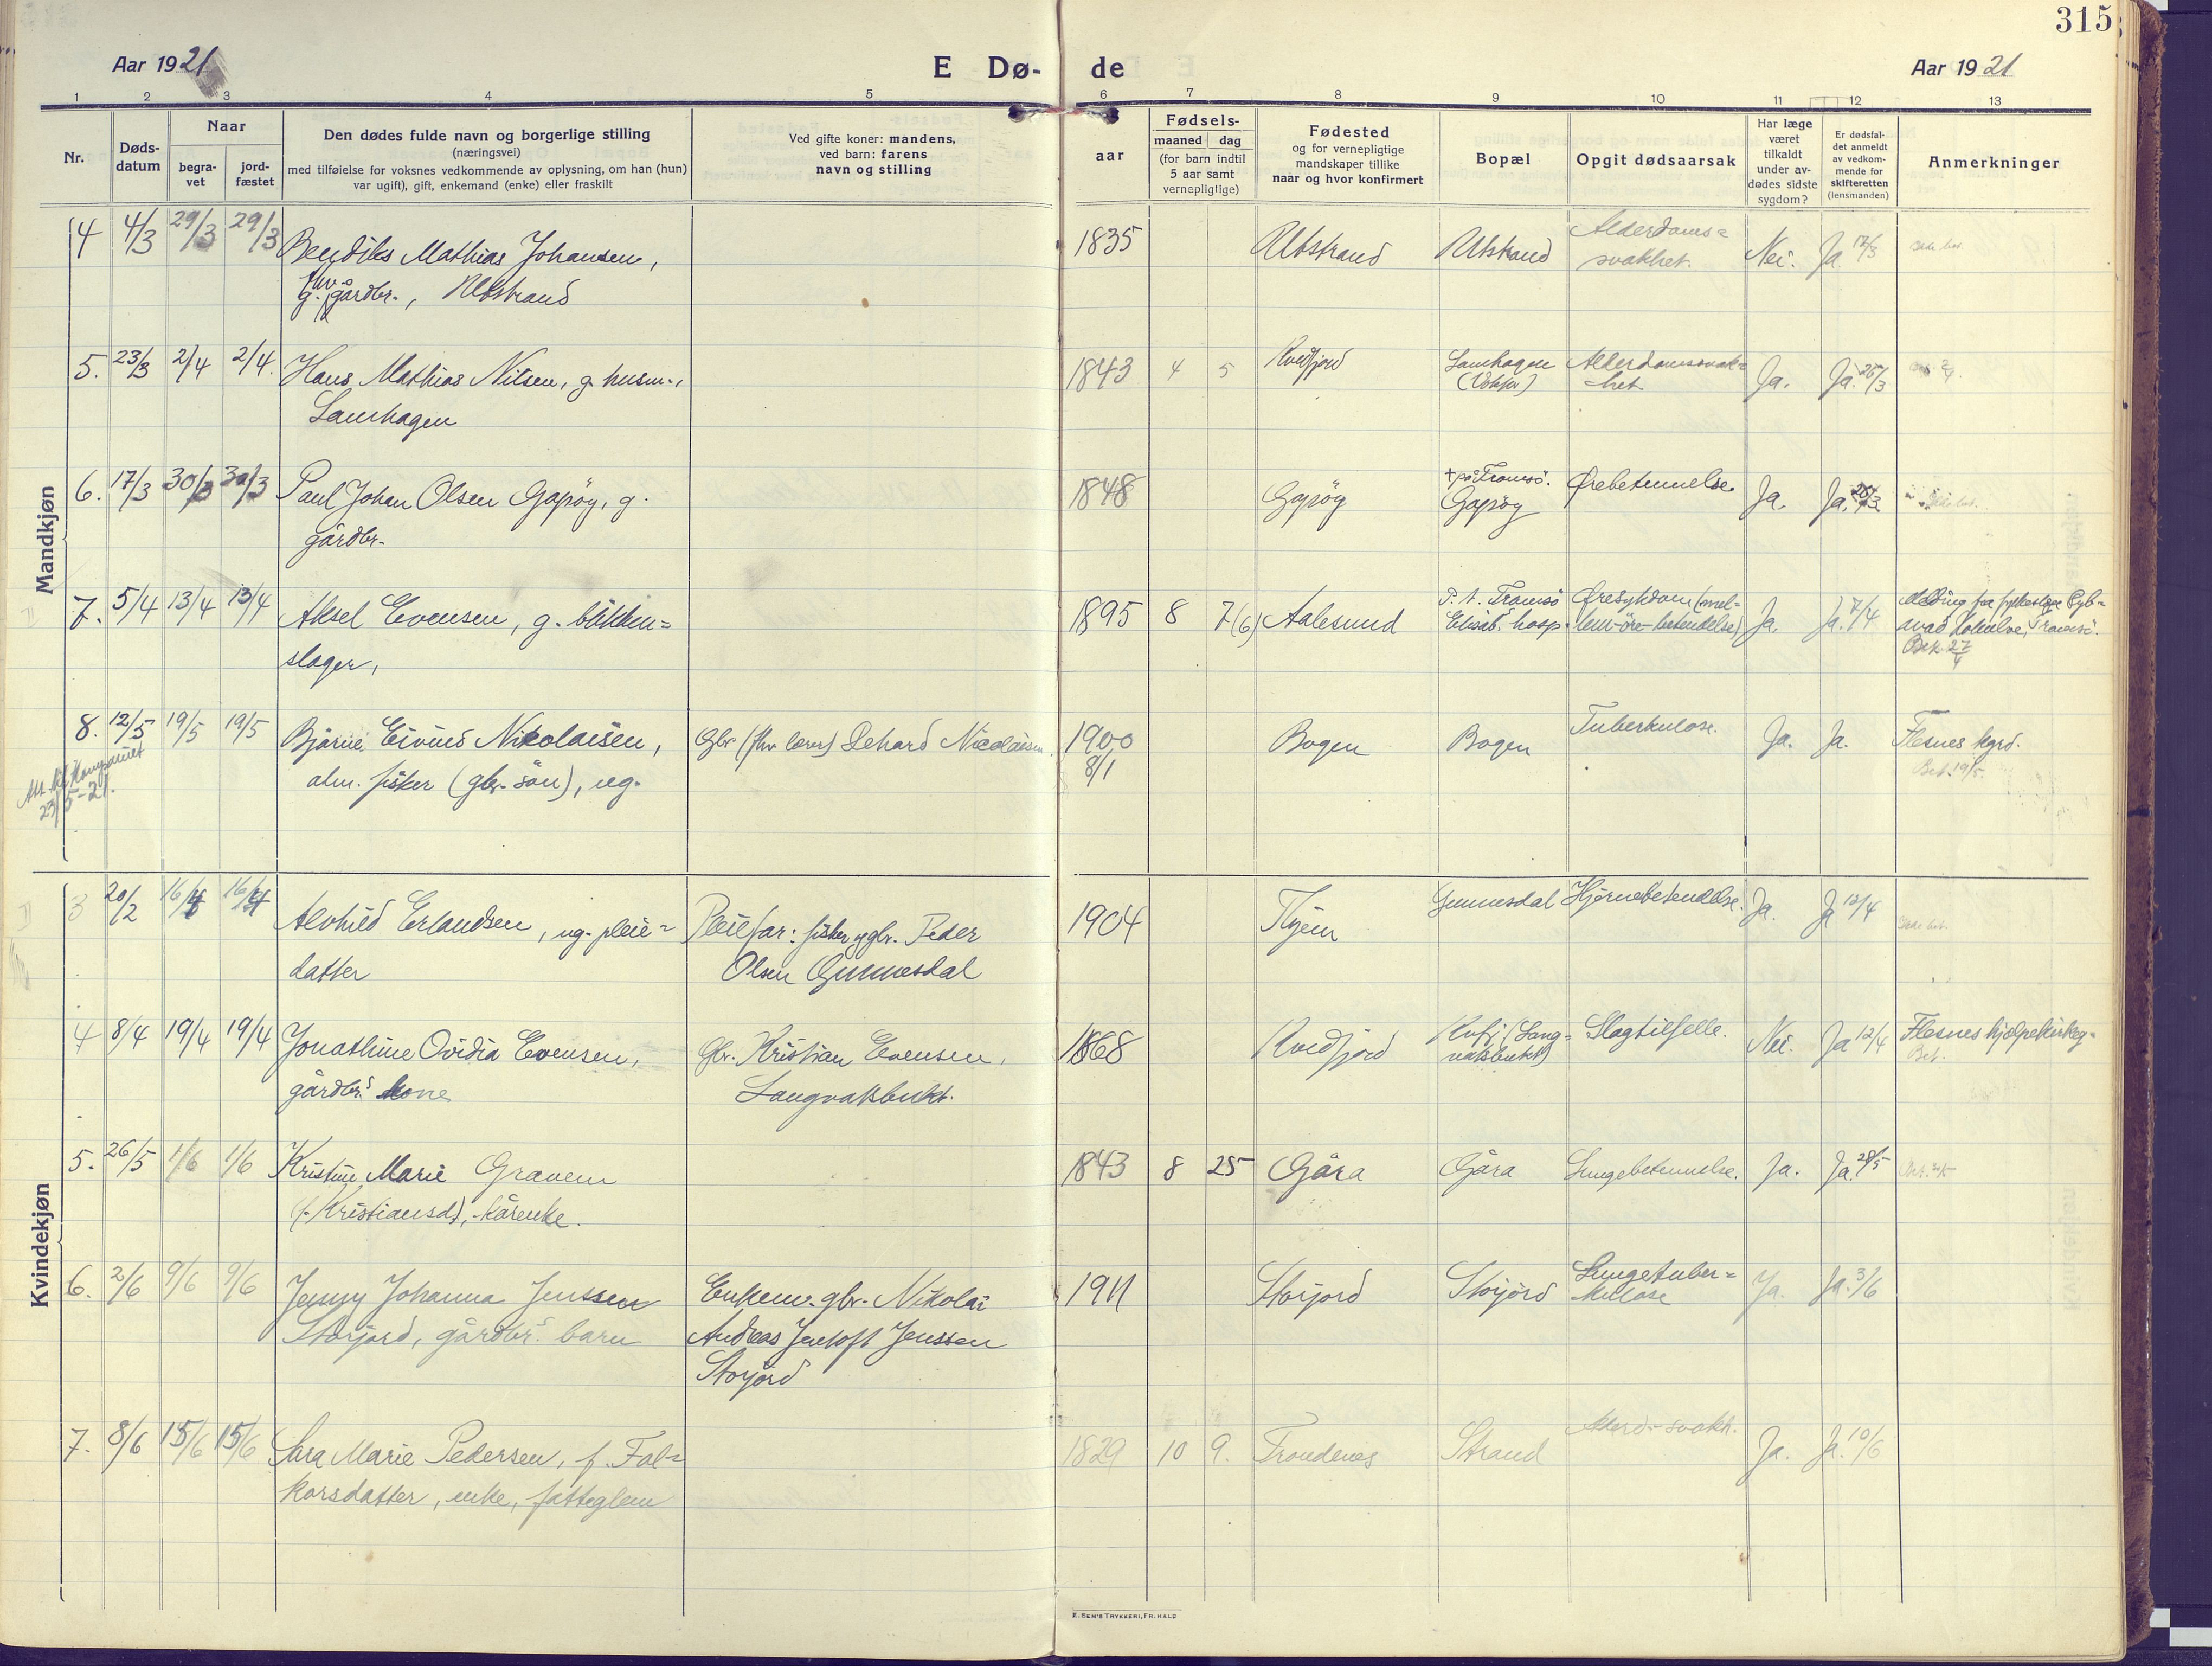 315
Aar 1921
E Dø- de
Aar 1921
1 2 3 4 5 6 7 8 9 10 11 12 13
Nr.
Døds-
datum
Naar
begra-
vet
jord-
fæstet
Den dødes fulde navn og borgerlige stilling
(næringsvei)
med tilføielse for voksnes vedkommende av oplysning, om han (hun)
var ugift), gift, enkemand (enke) eller fraskilt
Ved gifte koner: mandens,
ved barn: farens
navn og stilling
aar
Fødsels-
maaned dag
(for barn indtil
5 aar samt
vernepligtige)
Fødested
og for vernepligtige
mandskaper tillike
naar og hvor konfirmert
Bopæl
Opgit dødsaarsak
Har læge
været
tilkaldt
under av-
dødes sidste
sygdom?
Er dødsfal-
det anmeldt
av vedkom-
mende for
skifteretten
(lensmanden)
Anmerkninger
Mandkjøn
4 4/3 29/3 29/3 Bendiks Mathias Johansen,
g. fhv. gårdbr., Utstrand
1835 Utstrand Utstrand Alderdoms=
svakhet. Nei. Ja 17/3
5. 23/3 2/4 2/4. Hans Mathias Nilsen, g. husm.,
Lamhagen
1843 4 5 Kvedfjord Lamhagen Alderdomssvak=
het Ja. Ja. 26/3
6. 17/3 30/3 30/3 Paul Johan Olsen Gapøy, g.
gårdbr.
1848 Gapøy + på Tromsø.
Gapøy Ørebetennelse Ja. Ja.
7. 5/4 13/4 13/4 Aksel Evensen, g. blikken=
slager,
1895 8 7(6) Aalesund P. t. Tromsø
Elisab. hosp. Øresykdom (mel=
lem-øre-betendelse) Ja. Ja. 7/4
Tromsø.
Bek. 27/4
8. 12/5 19/5 19/5 Bjarne Eivind Nikolaisen,
alm. fisker (gbr. søn), ug.
Gbr (fhv lærer) Dehard Nicolaisen
1900
8/1
Bogen Bogen Tuberkulose. Ja. Ja. Flesnes kgrd.
Bet. 19/5.
23/5-21.
Kvindekjøn
3 20/2 16/4 16/4 Alvhild Erlandsen, ug. pleie=
datter
Pleiefar: fisker og gbr. Peder
Olsen Gummesdal
1904 Gummesdal Hjernebetendelse. Ja. Ja 12/4
4 8/4 19/4 19/4 Jonathine Ovidia Evensen,
gårdbr.s kone
Gbr. Kristian Evensen,
Langvatsbukt.
1868 Kvedfjord Kvfj. (Lang=
vatsbukt) Slagtilfelle. Nei. Ja 12/4 Flesnes hjelpekirkeg-
Bet.
5. 26/5 1/6 1/6 Kristine Marie Gravem
(f. Kristiansd), kårenke.
1843 8 25 Gåra Gåra Lungebetennelse. Ja. Ja. 28/5
6. 2/6 9/6 9/6 Jenny Johanna Jenssen
Storjord, gårdbr.s barn
Enkem. gbr. Nikolai
Andreas Jentoft Jenssen
Storjord
1911 Storjord Storjord Lungetuber=
kulose Ja. Ja. 3/6
7. 8/6 15/6 15/6 Sara Marie Pedersen, f. Fal=
korsdatter, enke, fattiglem
1829 10 9. Trondenes Strand Alderd.-svakh. Ja. Ja. 10/6
E. SEM'S TRYKKERI, FR.HALD